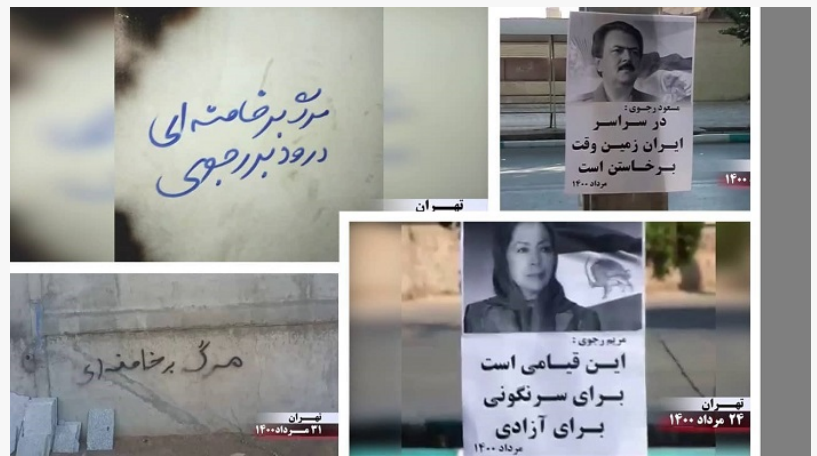 مرگ بر خامنه ای
درود بر رجوی
تهـــران
مسعود رجوی :
در سراسر
ایران زمین وقت
برخاستن است
مرداد ۱۴۰۰
۱۴۰۰
مرگ بر خامنه ای
تهـــران
۳۱ مــرداد ۱۴۰۰
مریم رجوی :
این قیامی است
برای سرنگونی
برای آزادی
مرداد ۱۴۰۰
تهـــران
۲۴ مرداد ۱۴۰۰